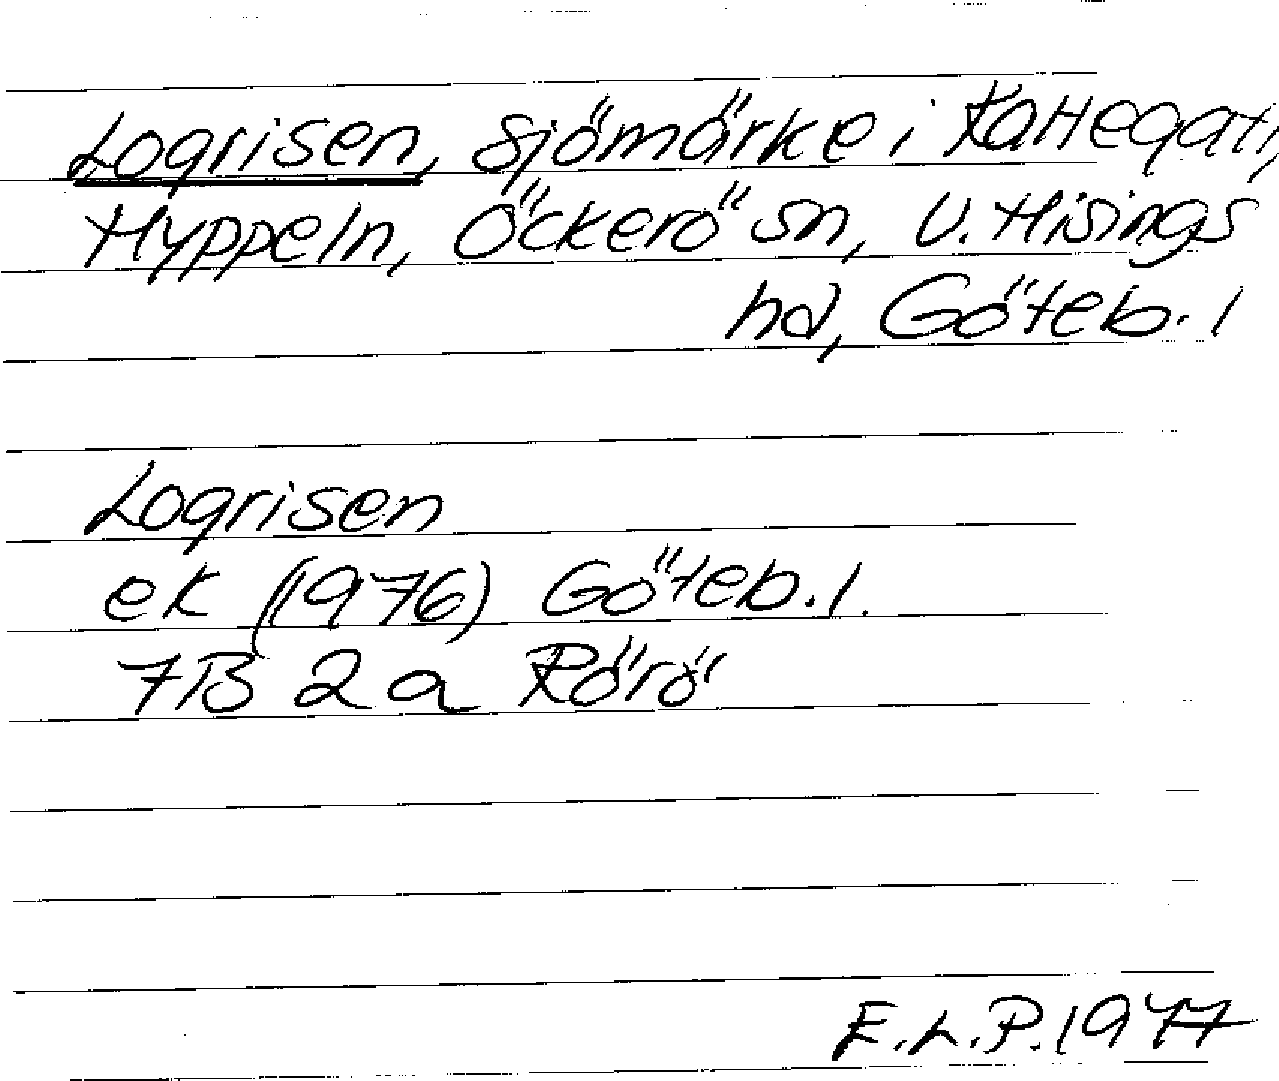 Logrisen, sjömärke i Kattegatt,
Hyppeln, Öckerö sn, V. Hisings
hd, Göteb. l
Logrisen
ek (1976) Göteb. l.
7B 2a Rörö
E.L.P. 1977